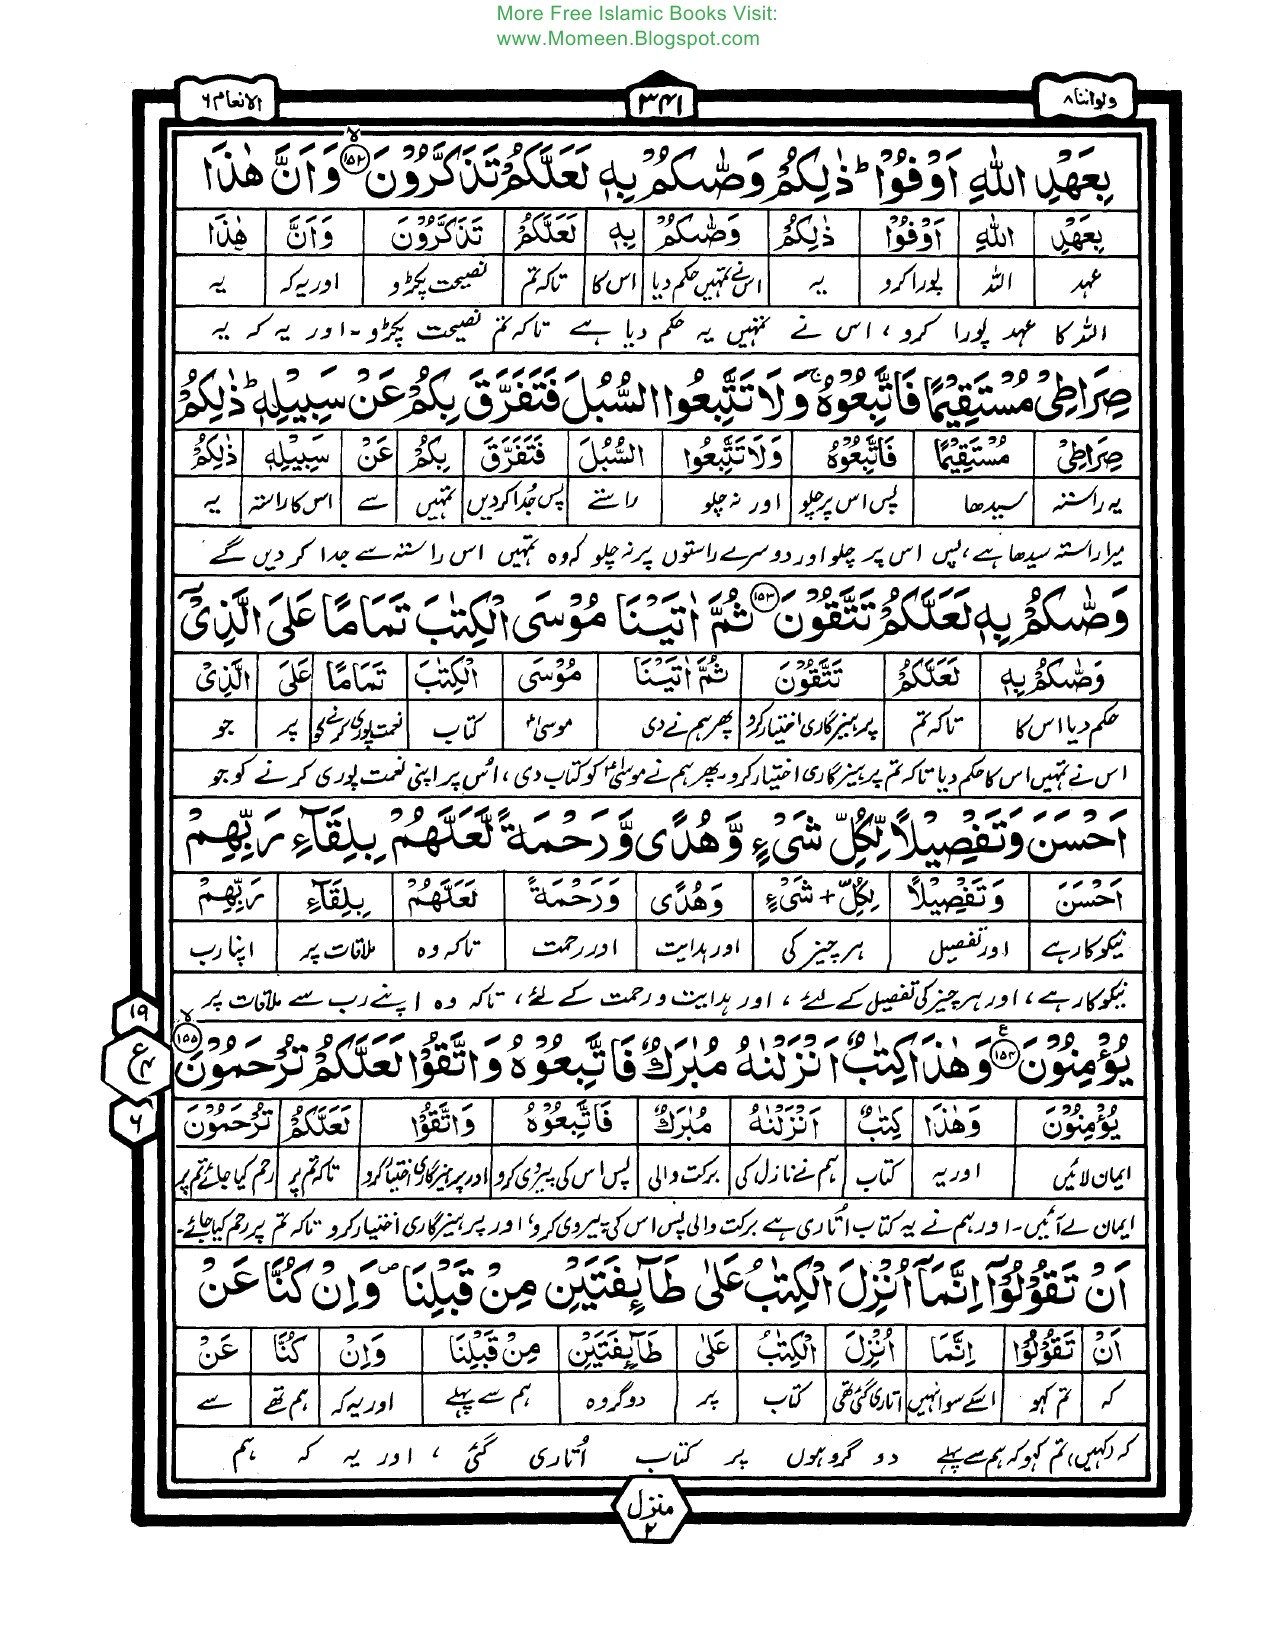 More Free Islamic Books Visit:
www.Momeen.Blogspot.com
ولواننا ۸
۳۴۱
الانعام ۶
بِعَهْدِ اللّٰهِ اَوْفُوْا ؕ ذٰلِكُمْ وَصّٰىكُمْ بِهٖ لَعَلَّكُمْ تَذَكَّرُوْنَ ۙ۱۵۲ وَاَنَّ هٰذَا
بِعَهْدِ اللّٰهِ اَوْفُوْا ذٰلِكُمْ وَصّٰىكُمْ بِهٖ لَعَلَّكُمْ تَذَكَّرُوْنَ وَاَنَّ هٰذَا
عہد اللہ پورا کرو یہ اس نے تمہیں حکم دیا اس کا تاکہ تم نصیحت پکڑو اور یہ کہ یہ
اللہ کا عہد پورا کرو ، اس نے تمہیں یہ حکم دیا ہے تاکہ تم نصیحت پکڑو ۔ اور یہ کہ یہ
صِرَاطِىْ مُسْتَقِيْمًا فَاتَّبِعُوْهُ ۚ وَلَا تَتَّبِعُوا السُّبُلَ فَتَفَرَّقَ بِكُمْ عَنْ سَبِيْلِهٖ ؕ ذٰلِكُمْ
صِرَاطِىْ مُسْتَقِيْمًا فَاتَّبِعُوْهُ وَلَا تَتَّبِعُوا السُّبُلَ فَتَفَرَّقَ بِكُمْ عَنْ سَبِيْلِهٖ ذٰلِكُمْ
یہ راستہ سیدھا پس اس پر چلو اور نہ چلو راستے پس جُدا کردیں تمہیں سے اس کا راستہ یہ
میرا راستہ سیدھا ہے ، پس اس پر چلو اور دوسرے راستوں پر نہ چلو کہ وہ تمہیں اس راستہ سے جدا کر دیں گے
وَصّٰىكُمْ بِهٖ لَعَلَّكُمْ تَتَّقُوْنَ ۱۵۳ ثُمَّ اٰتَيْنَا مُوْسَى الْكِتٰبَ تَمَامًا عَلَى الَّذِىْۤ
وَصّٰىكُمْ بِهٖ لَعَلَّكُمْ تَتَّقُوْنَ ثُمَّ اٰتَيْنَا مُوْسَى الْكِتٰبَ تَمَامًا عَلَى الَّذِىْ
حکم دیا اس کا تاکہ تم پرہیزگاری اختیار کرو پھر ہم نے دی موسیٰؑ کتاب نعمت پوری کرنے کو پر جو
اس نے تمہیں اس کا حکم دیا تاکہ تم پرہیزگاری اختیار کرو ۔ پھر ہم نے موسیٰؑ کو کتاب دی ، اُس پر اپنی نعمت پوری کرنے کو جو
اَحْسَنَ وَتَفْصِيْلًا لِّكُلِّ شَىْءٍ وَّهُدًى وَّرَحْمَةً لَّعَلَّهُمْ بِلِقَآءِ رَبِّهِمْ
اَحْسَنَ وَتَفْصِيْلًا لِكُلِّ + شَىْءٍ وَهُدًى وَرَحْمَةً لَعَلَّهُمْ بِلِقَآءِ رَبِّهِمْ
نیکوکار ہے اور تفصیل ہر چیز کی اور ہدایت اور رحمت تاکہ وہ ملاقات پر اپنا رب
نیکوکار ہے ، اور ہر چیز کی تفصیل کے لئے ، اور ہدایت و رحمت کے لئے ، تاکہ وہ اپنے رب سے ملاقات پر
۱۹
ع
۴
۶
يُؤْمِنُوْنَ ۱۵۴ وَهٰذَا كِتٰبٌ اَنْزَلْنٰهُ مُبٰرَكٌ فَاتَّبِعُوْهُ وَاتَّقُوْا لَعَلَّكُمْ تُرْحَمُوْنَ ۙ۱۵۵
يُؤْمِنُوْنَ وَهٰذَا كِتٰبٌ اَنْزَلْنٰهُ مُبٰرَكٌ فَاتَّبِعُوْهُ وَاتَّقُوْا لَعَلَّكُمْ تُرْحَمُوْنَ
ایمان لائیں اور یہ کتاب ہم نے نازل کی برکت والی پس اس کی پیروی کرو اور پرہیزگاری اختیار کرو تاکہ تم پر رحم کیا جائے تم پر
ایمان لے آئیں ۔ اور ہم نے یہ کتاب اُتاری ہے برکت والی پس اس کی پیروی کرو ، اور پرہیزگاری اختیار کرو تاکہ تم پر رحم کیا جائے ۔
اَنْ تَقُوْلُوْۤا اِنَّمَاۤ اُنْزِلَ الْكِتٰبُ عَلٰى طَآئِفَتَيْنِ مِنْ قَبْلِنَا ۪ وَاِنْ كُنَّا عَنْ
اَنْ تَقُوْلُوْا اِنَّمَا اُنْزِلَ الْكِتٰبُ عَلٰى طَآئِفَتَيْنِ مِنْ قَبْلِنَا وَاِنْ كُنَّا عَنْ
کہ تم کہو اسکے سوا نہیں اتاری گئی تھی کتاب پر دو گروہ ہم سے پہلے اور یہ کہ ہم تھے سے
کہ (کہیں) تم کہو کہ ہم سے پہلے دو گروہوں پر کتاب اُتاری گئی ، اور یہ کہ ہم
منزل ۲